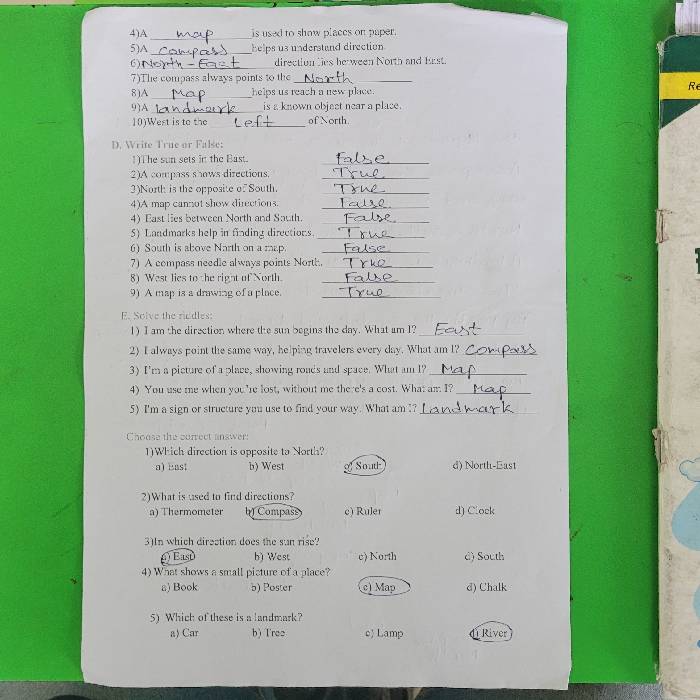 4)A map is used to show places on paper.
5)A compass helps us understand direction.
6)North - East direction lies between North and East.
7)The compass always points to the North
8)A Map helps us reach a new place.
9)A landmark is a known object near a place.
10)West is to the Left of North.
D. Write True or False:
1)The sun sets in the East. False
2)A compass shows directions. True
3)North is the opposite of South. True
4)A map cannot show directions. False
4) East lies between North and South. False
5) Landmarks help in finding directions. True
6) South is above North on a map. False
7) A compass needle always points North. True
8) West lies to the right of North. False
9) A map is a drawing of a place. True
E. Solve the riddles:
1) I am the direction where the sun begins the day. What am I? East
2) I always point the same way, helping travelers every day. What am I? Compass
3) I'm a picture of a place, showing roads and space. What am I? Map
4) You use me when you're lost, without me there's a cost. What am I? Map
5) I'm a sign or structure you use to find your way. What am I? Landmark
Choose the correct answer:
1)Which direction is opposite to North?
a) East b) West c) South d) North-East
2)What is used to find directions?
a) Thermometer b) Compass c) Ruler d) Clock
3)In which direction does the sun rise?
a) East b) West c) North d) South
4) What shows a small picture of a place?
a) Book b) Poster c) Map d) Chalk
5) Which of these is a landmark?
a) Car b) Tree c) Lamp d) River
Re